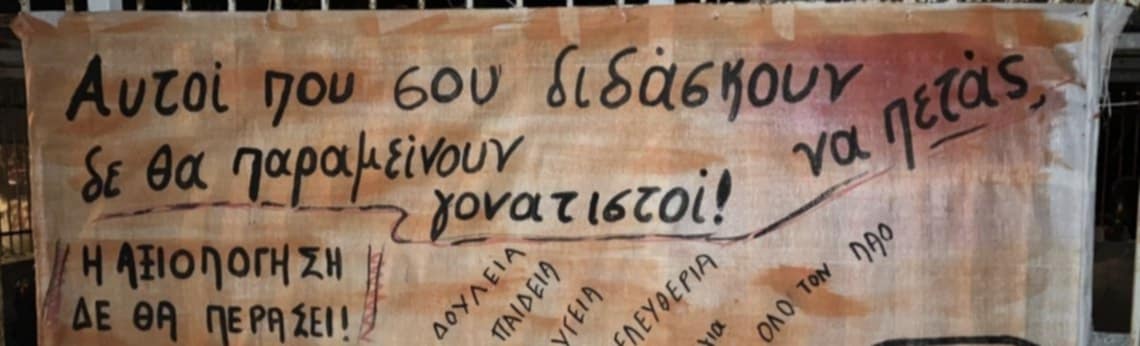 Αυτοί που σου διδάσκουν να πετάς,
δε θα παραμείνουν
γονατιστοί!
Η ΑΞΙΟΛΟΓΗΣΗ
ΔΕ ΘΑ ΠΕΡΑΣΕΙ!
ΔΟΥΛΕΙΑ
ΠΑΙΔΕΙΑ
ΥΓΕΙΑ
ΕΛΕΥΘΕΡΙΑ
για
ΟΛΟ ΤΟΝ ΛΑΟ